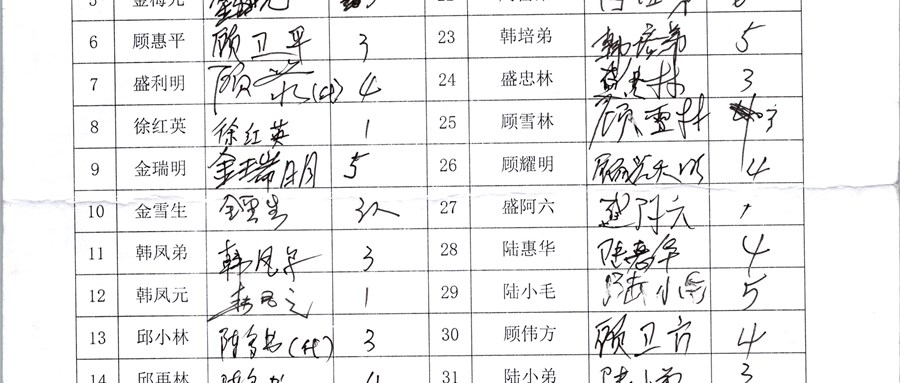 5 金梅元
6 顾惠平 顾卫平 3 23 韩培弟 韩培弟 5
7 盛利明 (代) 4 24 盛忠林 盛忠林 3
8 徐红英 徐红英 1 25 顾雪林 顾雪林 3
9 金瑞明 金瑞明 5 26 顾耀明 4
10 金雪生 金雪生 3人 27 盛阿六
11 韩凤弟 韩凤弟 3 28 陆惠华 陆惠华 4
12 韩凤元 韩凤元 1 29 陆小毛 陆小毛 5
13 邱小林 (代) 3 30 顾伟方 顾卫方 4
14 邱再林 4 31 陆小弟 陆小弟 3